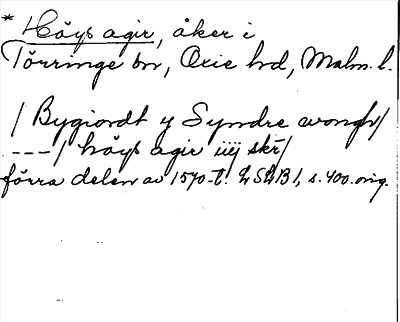 * Höys agir, åker i
Törringe sn, Oxie hd, Malm. l.
/ Bygiordt y Syndre wongh/
---/ höys agir iiij skr/
förra delen av 1570-t. LSLB 1, s. 400. orig.